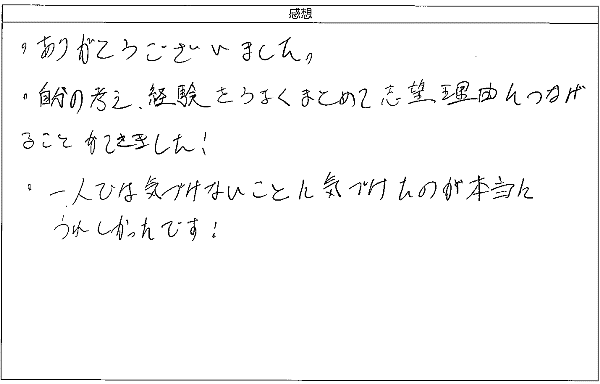 感想
・ありがとうございました。
・自分の考え、経験をうまくまとめて志望理由につなげ
ることができました！
・一人では気づけないことに気づけたのが本当に
うれしかったです！